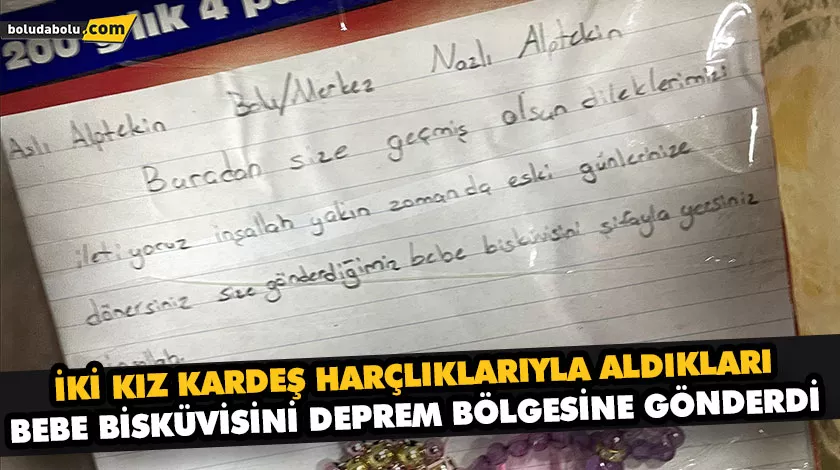 boludabolu.com
200 g lık 4 p
Aslı Alptekin Bolu/Merkez Nazlı Alptekin
Buradan size geçmiş olsun dileklerimizi
iletiyoruz inşallah yakın zamanda eski günlerinize
dönersiniz size gönderdiğimiz bebe biskivisini şifayla yersiniz
inşallah.
İKİ KIZ KARDEŞ HARÇLIKLARIYLA ALDIKLARI
BEBE BİSKÜVİSİNİ DEPREM BÖLGESİNE GÖNDERDİ